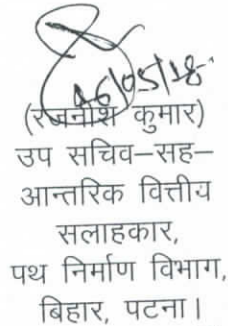 16/05/18
(रजनीश कुमार)
उप सचिव-सह-
आन्तरिक वित्तीय
सलाहकार,
पथ निर्माण विभाग,
बिहार, पटना।